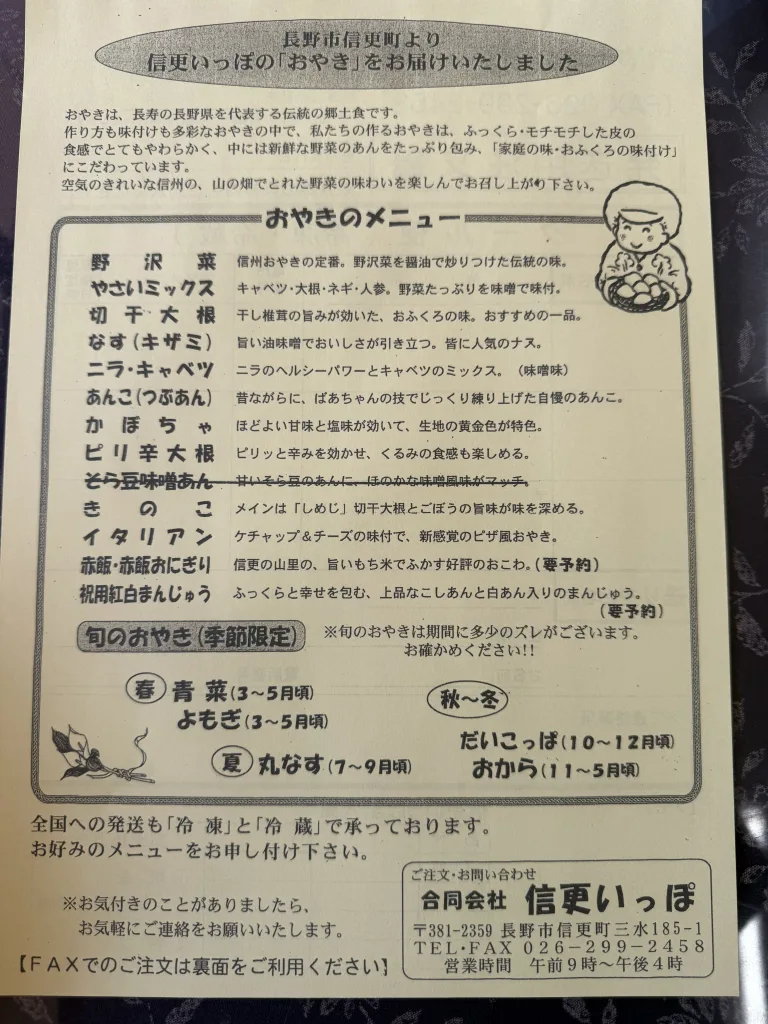 長野市信更町より
信更いっぽの「おやき」をお届けいたしました
おやきは、長寿の長野県を代表する伝統の郷土食です。
作り方も味付けも多彩なおやきの中で、私たちの作るおやきは、ふっくら・モチモチした皮の
食感でとてもやわらかく、中には新鮮な野菜のあんをたっぷり包み、「家庭の味・おふくろの味付け」
にこだわっています。
空気のきれいな信州の、山の畑でとれた野菜の味わいを楽しんでお召し上がり下さい。
おやきのメニュー
野沢菜 信州おやきの定番。野沢菜を醤油で炒りつけた伝統の味。
やさいミックス キャベツ・大根・ネギ・人参。野菜たっぷりを味噌で味付。
切干大根 干し椎茸の旨みが効いた、おふくろの味。おすすめの一品。
なす(キザミ) 旨い油味噌でおいしさが引き立つ。皆に人気のナス。
ニラ・キャベツ ニラのヘルシーパワーとキャベツのミックス。（味噌味）
あんこ(つぶあん) 昔ながらに、ばあちゃんの技でじっくり練り上げた自慢のあんこ。
かぼちゃ ほどよい甘味と塩味が効いて、生地の黄金色が特色。
ピリ辛大根 ピリッと辛みを効かせ、くるみの食感も楽しめる。
そら豆味噌あん 甘いそら豆のあんに、ほのかな味噌風味がマッチ。
きのこ メインは「しめじ」切干大根とごぼうの旨味が味を深める。
イタリアン ケチャップ＆チーズの味付で、新感覚のピザ風おやき。
赤飯・赤飯おにぎり 信更の山里の、旨いもち米でふかす好評のおこわ。(要予約)
祝用紅白まんじゅう ふっくらと幸せを包む、上品なこしあんと白あん入りのまんじゅう。
(要予約)
旬のおやき(季節限定) ※旬のおやきは期間に多少のズレがございます。
お確かめください!!
春 青菜(3〜5月頃)
よもぎ(3〜5月頃)
夏 丸なす(7〜9月頃)
秋〜冬
だいこっぱ(10〜12月頃)
おから(11〜5月頃)
全国への発送も「冷凍」と「冷蔵」で承っております。
お好みのメニューをお申し付け下さい。
※お気付きのことがありましたら、
お気軽にご連絡をお願いいたします。
【FAXでのご注文は裏面をご利用ください】
ご注文・お問い合わせ
合同会社 信更いっぽ
〒381-2359 長野市信更町三水185-1
TEL・FAX 026-299-2458
営業時間 午前9時〜午後4時